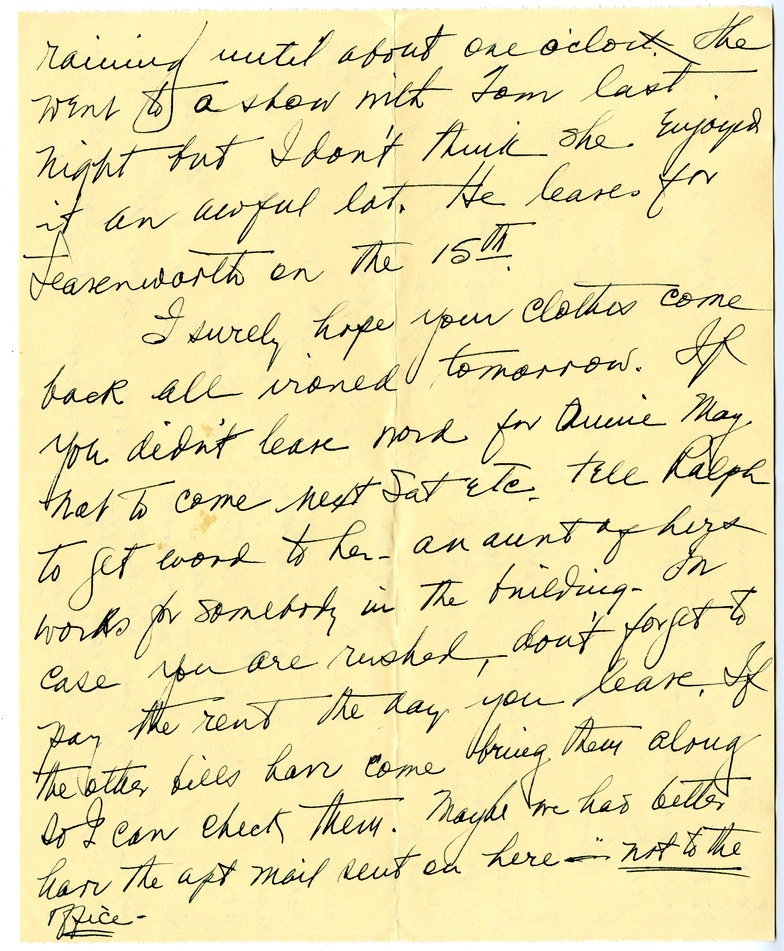 raining until about one o'clock. She
went to a show with Tom last
night but I don't think she enjoyed
it an awful lot. He leaves for
Leavenworth on the 15th.
I surely hope your clothes come
back all ironed tomorrow. If
you didn't leave word for Annie May
not to come next Sat etc. tell Ralph
to get word to her - an aunt of hers
works for somebody in the building - In
case you are rushed, don't forget to
pay the rent the day you leave. If
the other bills have come bring them along
so I can check them. Maybe we had better
have the apt mail sent on here - not to the
office -